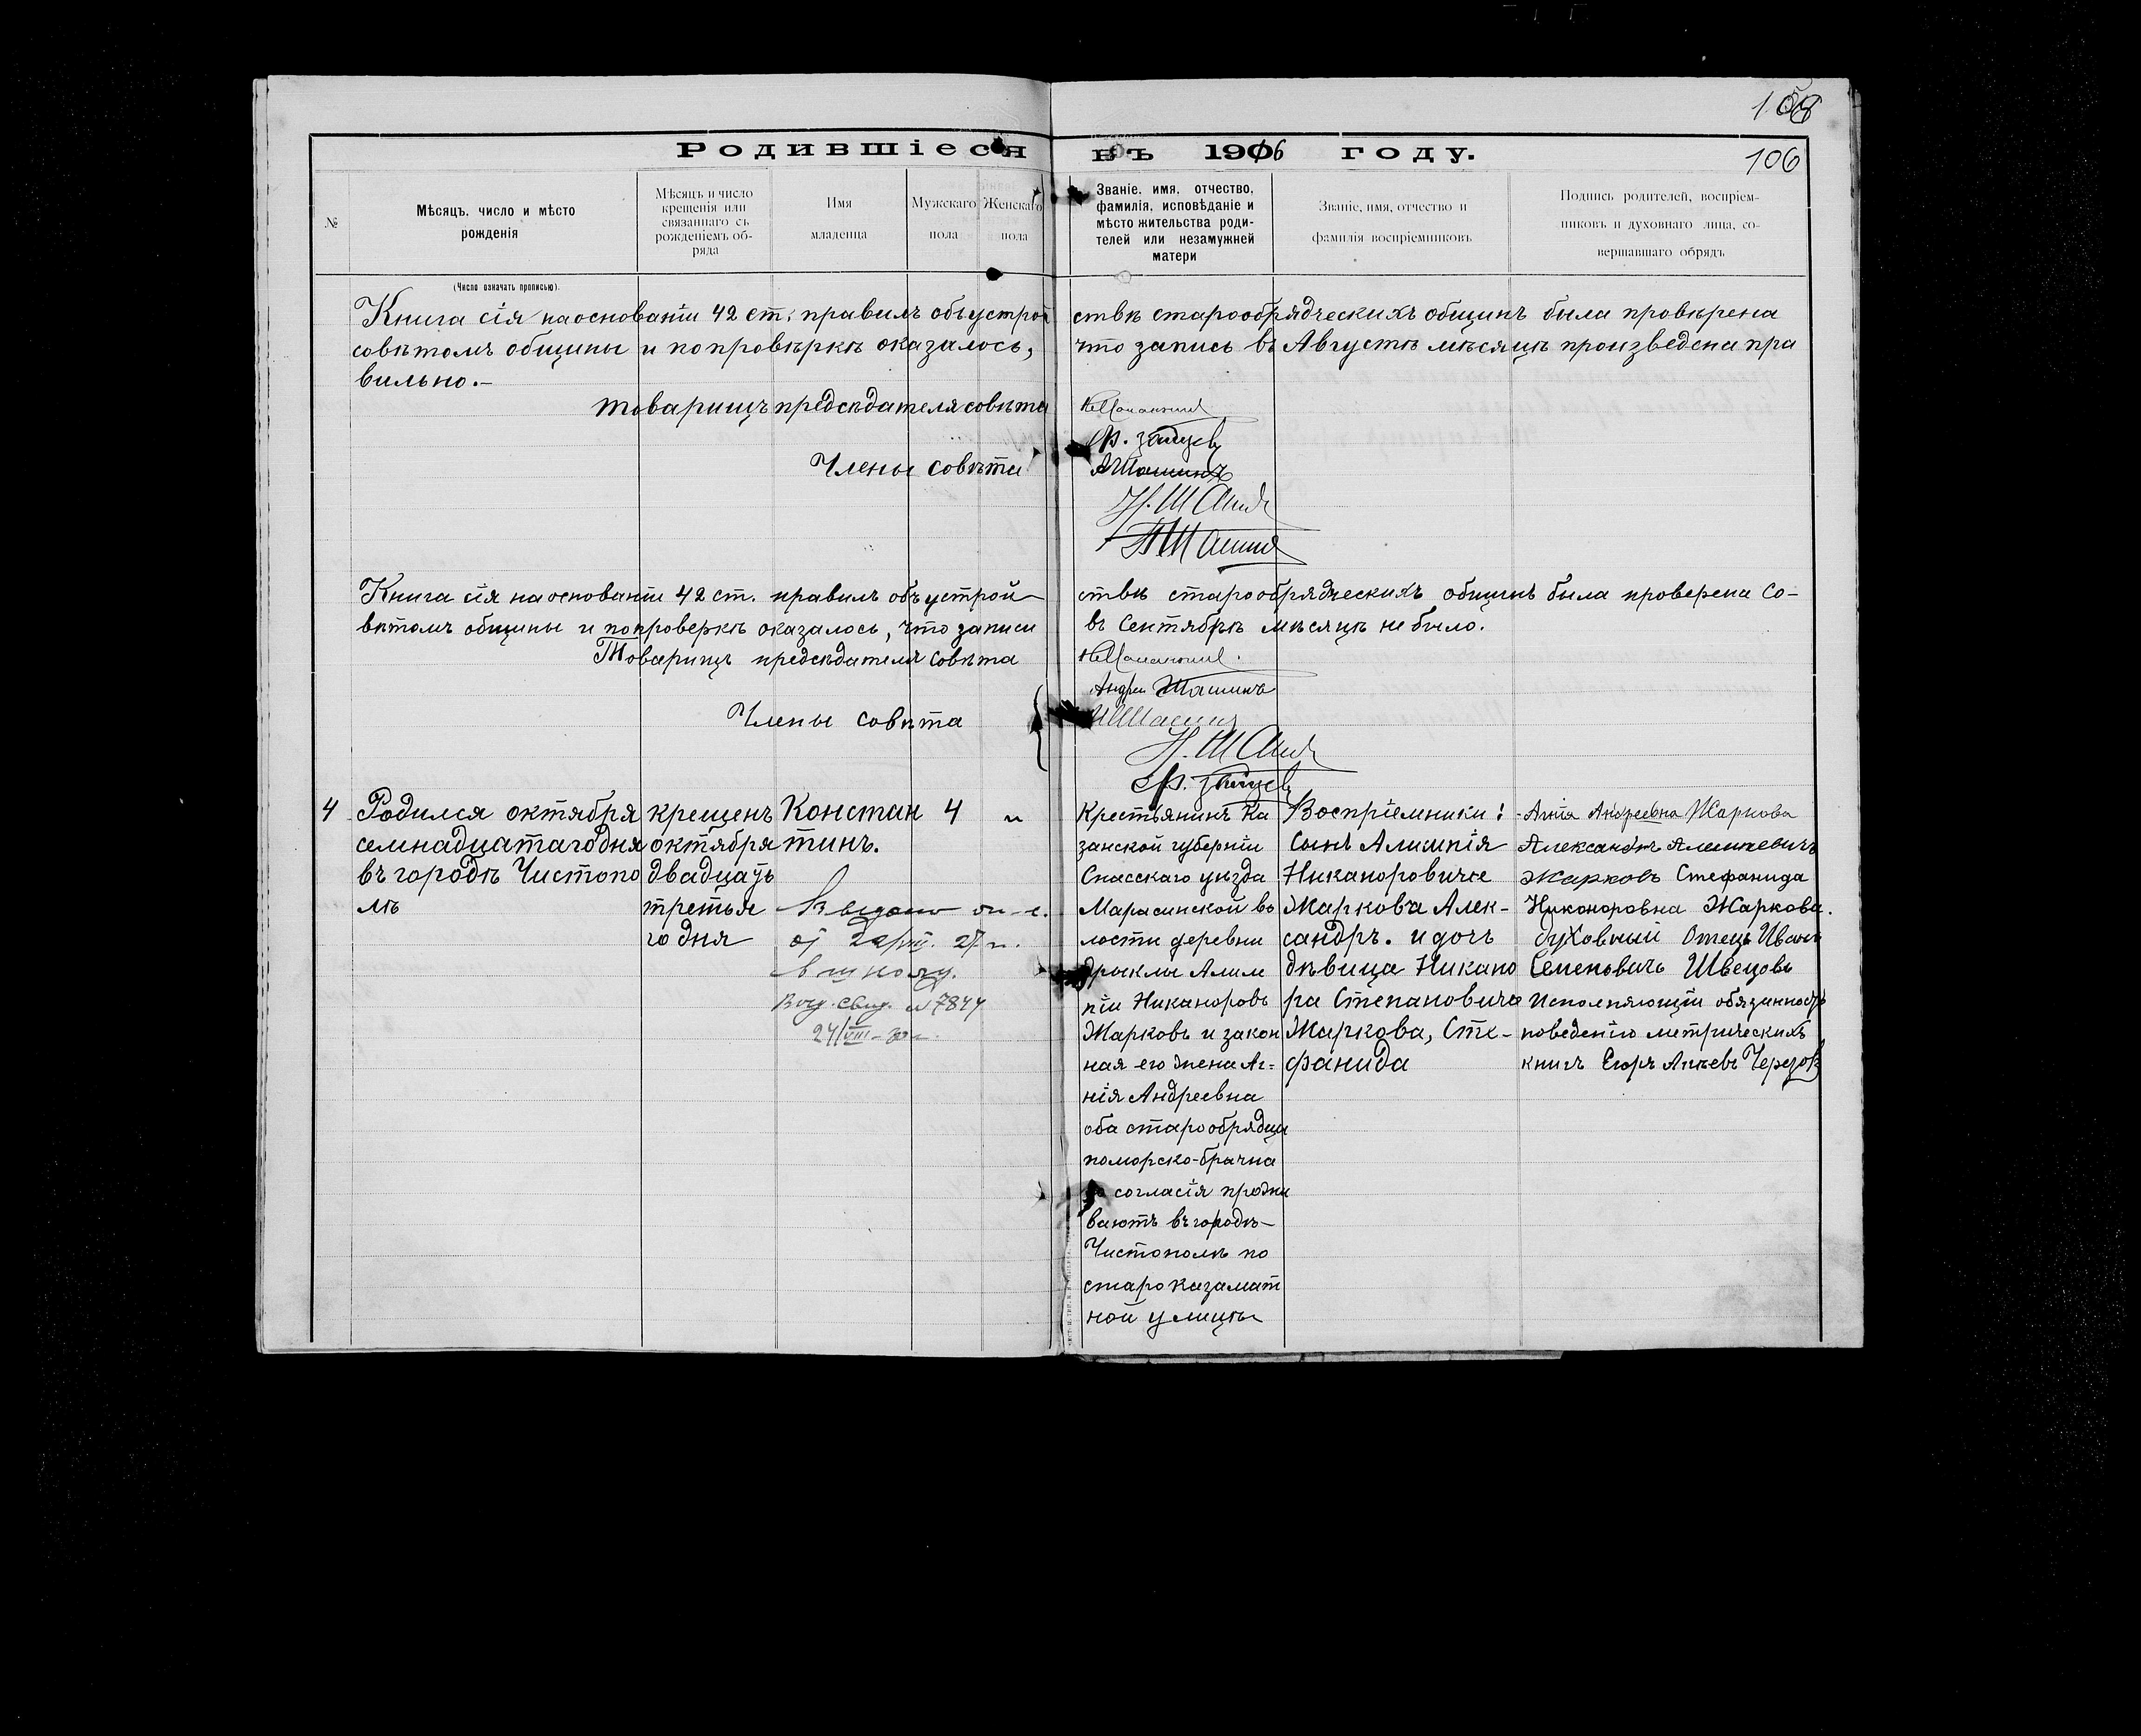 106
Родившіеся въ 1906 году.
№
Мѣсяцъ, число и мѣсто рожденія
Мѣсяцъ и число крещенія или связаннаго съ рожденіемъ обряда
Имя младенца
Мужскаго пола
Женскаго пола
Званіе, имя, отчество, фамилія, исповѣданіе и мѣсто жительства родителей или незамужней матери
Званіе, имя, отчество и фамилія воспріемниковъ
Подпись родителей, воспріемниковъ и духовнаго лица, совершавшаго обрядъ
(Число означать прописью).
Книга сія на основаніи 42 ст. правилъ объ устрой ствѣ старообрядческихъ общинъ была провѣрена
совѣтомъ общины и по провѣркѣ оказалось, что запись въ Августѣ мѣсяцѣ произведена пра
вильно.-
товарищъ предсѣдателя совѣта
Ф. Зайцев
Члены совѣта
А Шашинъ
Книга сія на основаніи 42 ст. правилъ объ устрой ствѣ старообрядческихъ общинъ была проверена Со-
вѣтомъ общины и по проверкѣ оказалось, что записи въ Сентябрѣ мѣсяцѣ не было.
Товарищъ предсѣдателя Совѣта
Андрей Шашинъ
Члены совѣта
Ф. Зайцев
4
Родился октября
семнадцатаго дня
въ городѣ Чистопо
лѣ
крещенъ
октября
двадцать
третья
го дня
Констан
тинъ.
4
"
Выдано
в школу.
Выд. свид. № 7844
24/VIII-30 г.
Крестьянинъ Ка
занской губерніи
Спасскаго уѣзда
Марасинской во
лости деревни
Алим
піи Никаноровъ
Жарковъ и закон
ная его жена Аг=
нія Андреевна
оба старообрядцы
поморско-брачна
го согласія прожи
вають въ городѣ
Чистополѣ по
старо казамат
ной улицы
Воспріемники:
Сынъ Алимпія
Никаноровича
Жаркова Алек-
сандръ. и дочь
дѣвица Никано
ра Степановича
Жаркова, Сте-
фанида
Агнія Андреевна Жаркова
Александръ Алимпевичъ
Жарковъ Стефанида
Никоноровна Жаркова.
духовный Отецъ Иванъ
Семеновичъ Швецовъ
Исполняющій обязанность
поведенію метрическихъ
книгъ Егоръ